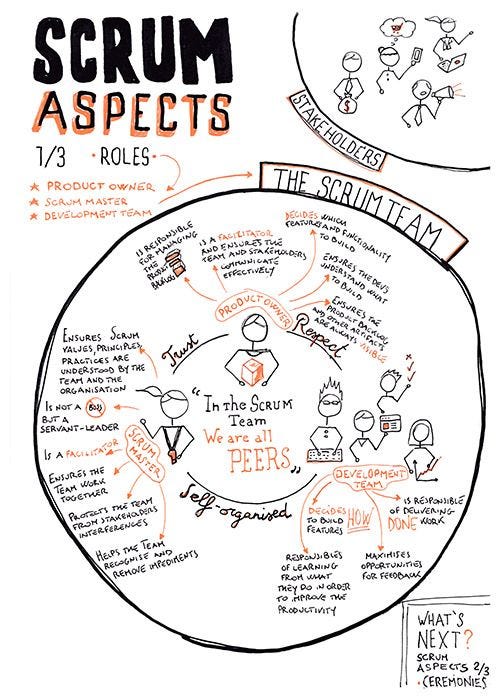 SCRUM
ASPECTS
1/3 • ROLES •
★ PRODUCT OWNER
★ SCRUM MASTER
★ DEVELOPMENT TEAM
$
STAKEHOLDERS
THE SCRUM TEAM
IS RESPONSIBLE
FOR MANAGING
THE
PRODUCT
BACKLOG
IS A FACILITATOR
AND ENSURES THE
TEAM AND STAKEHOLDERS
COMMUNICATE
EFFECTIVELY
DECIDES WHICH
FEATURES AND FUNCTIONALITY
TO BUILD
ENSURES THE DEVS
UNDERSTAND WHAT
TO BUILD
ENSURES THE
PRODUCT BACKLOG
AND OTHER ARTIFACTS
ARE ALWAYS VISIBLE
PRODUCT OWNER
Trust
Respect
ENSURES SCRUM
VALUES, PRINCIPLES,
PRACTICES ARE
UNDERSTOOD BY THE
TEAM AND THE
ORGANISATION
IS NOT A BOSS
BUT A
SERVANT-LEADER
IS A FACILITATOR
ENSURES THE
TEAM WORK
TOGETHER
PROTECTS THE TEAM
FROM STAKEHOLDERS
INTERFERENCES
HELPS THE TEAM
RECOGNISE AND
REMOVE IMPEDIMENTS
SCRUM
MASTER
"IN THE SCRUM
TEAM
WE are all
PEERS"
Self-organised
DEVELOPMENT
TEAM
DECIDES HOW
TO BUILD
FEATURES
IS RESPONSIBLE
OF DELIVERING
DONE WORK
RESPONSIBLES
OF LEARNING
FROM WHAT
THEY DO IN ORDER
TO IMPROVE THE
PRODUCTIVITY
MAXIMISES
OPPORTUNITIES
FOR FEEDBACK
WHAT'S
NEXT?
SCRUM
ASPECTS 2/3
• CEREMONIES